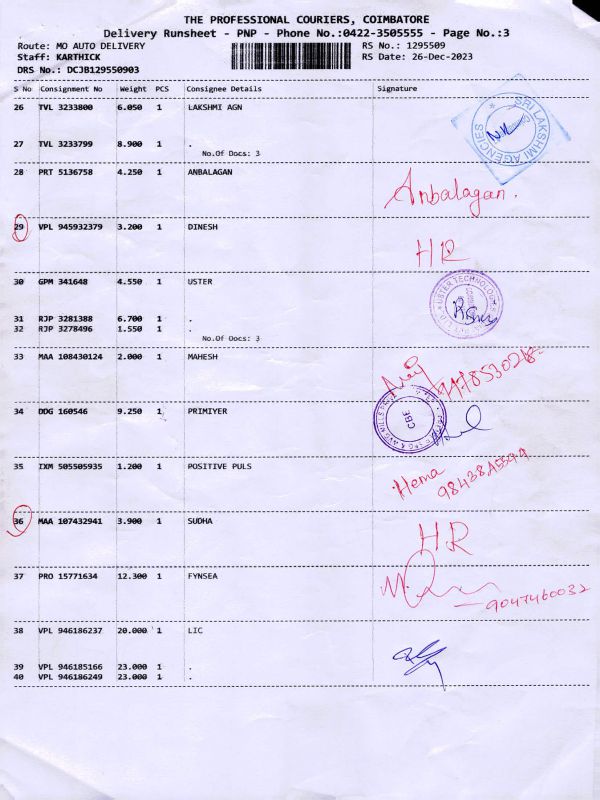 THE PROFESSIONAL COURIERS, COIMBATORE
Delivery Runsheet - PNP - Phone No.:0422-3505555 - Page No.:3
Route: MO AUTO DELIVERY RS No.: 1295509
Staff: KARTHICK RS Date: 26-Dec-2023
DRS No.: DCJB129550903
S No Consignment No Weight PCS Consignee Details Signature
26 TVL 3233800 6.050 1 LAKSHMI AGN
SRI LAKSHMI AGENCIES
27 TVL 3233799 8.900 1 .
No.Of Docs: 3
28 PRT 5136758 4.250 1 ANBALAGAN
Anbalagan.
29 VPL 945932379 3.200 1 DINESH
HR
30 GPM 341648 4.550 1 USTER
USTER TECHNOLOGIES
31 RJP 3281388 6.700 1 .
32 RJP 3278496 1.550 1 .
No.Of Docs: 3
33 MAA 108430124 2.000 1 MAHESH
34 DDG 160546 9.250 1 PRIMIYER
CBE
35 IXM 505505935 1.200 1 POSITIVE PULS
Hema
36 MAA 107432941 3.900 1 SUDHA
HR
37 PRO 15771634 12.300 1 FYNSEA
9047460032
38 VPL 946186237 20.000 1 LIC
39 VPL 946185166 23.000 1 .
40 VPL 946186249 23.000 1 .